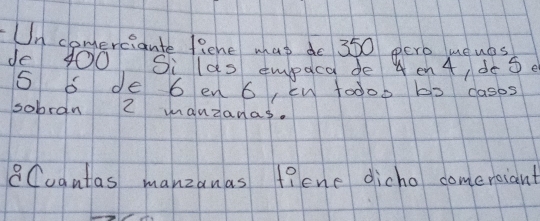 Un comerciante tiene mas de 350 pero menos
de 400 Si las empaca de 4 en 4, de 5 e
5 ó de 6 en 6, en todos los casos
sobran 2 manzanas.
¿Cuantas manzanas tiene dicho comerciant